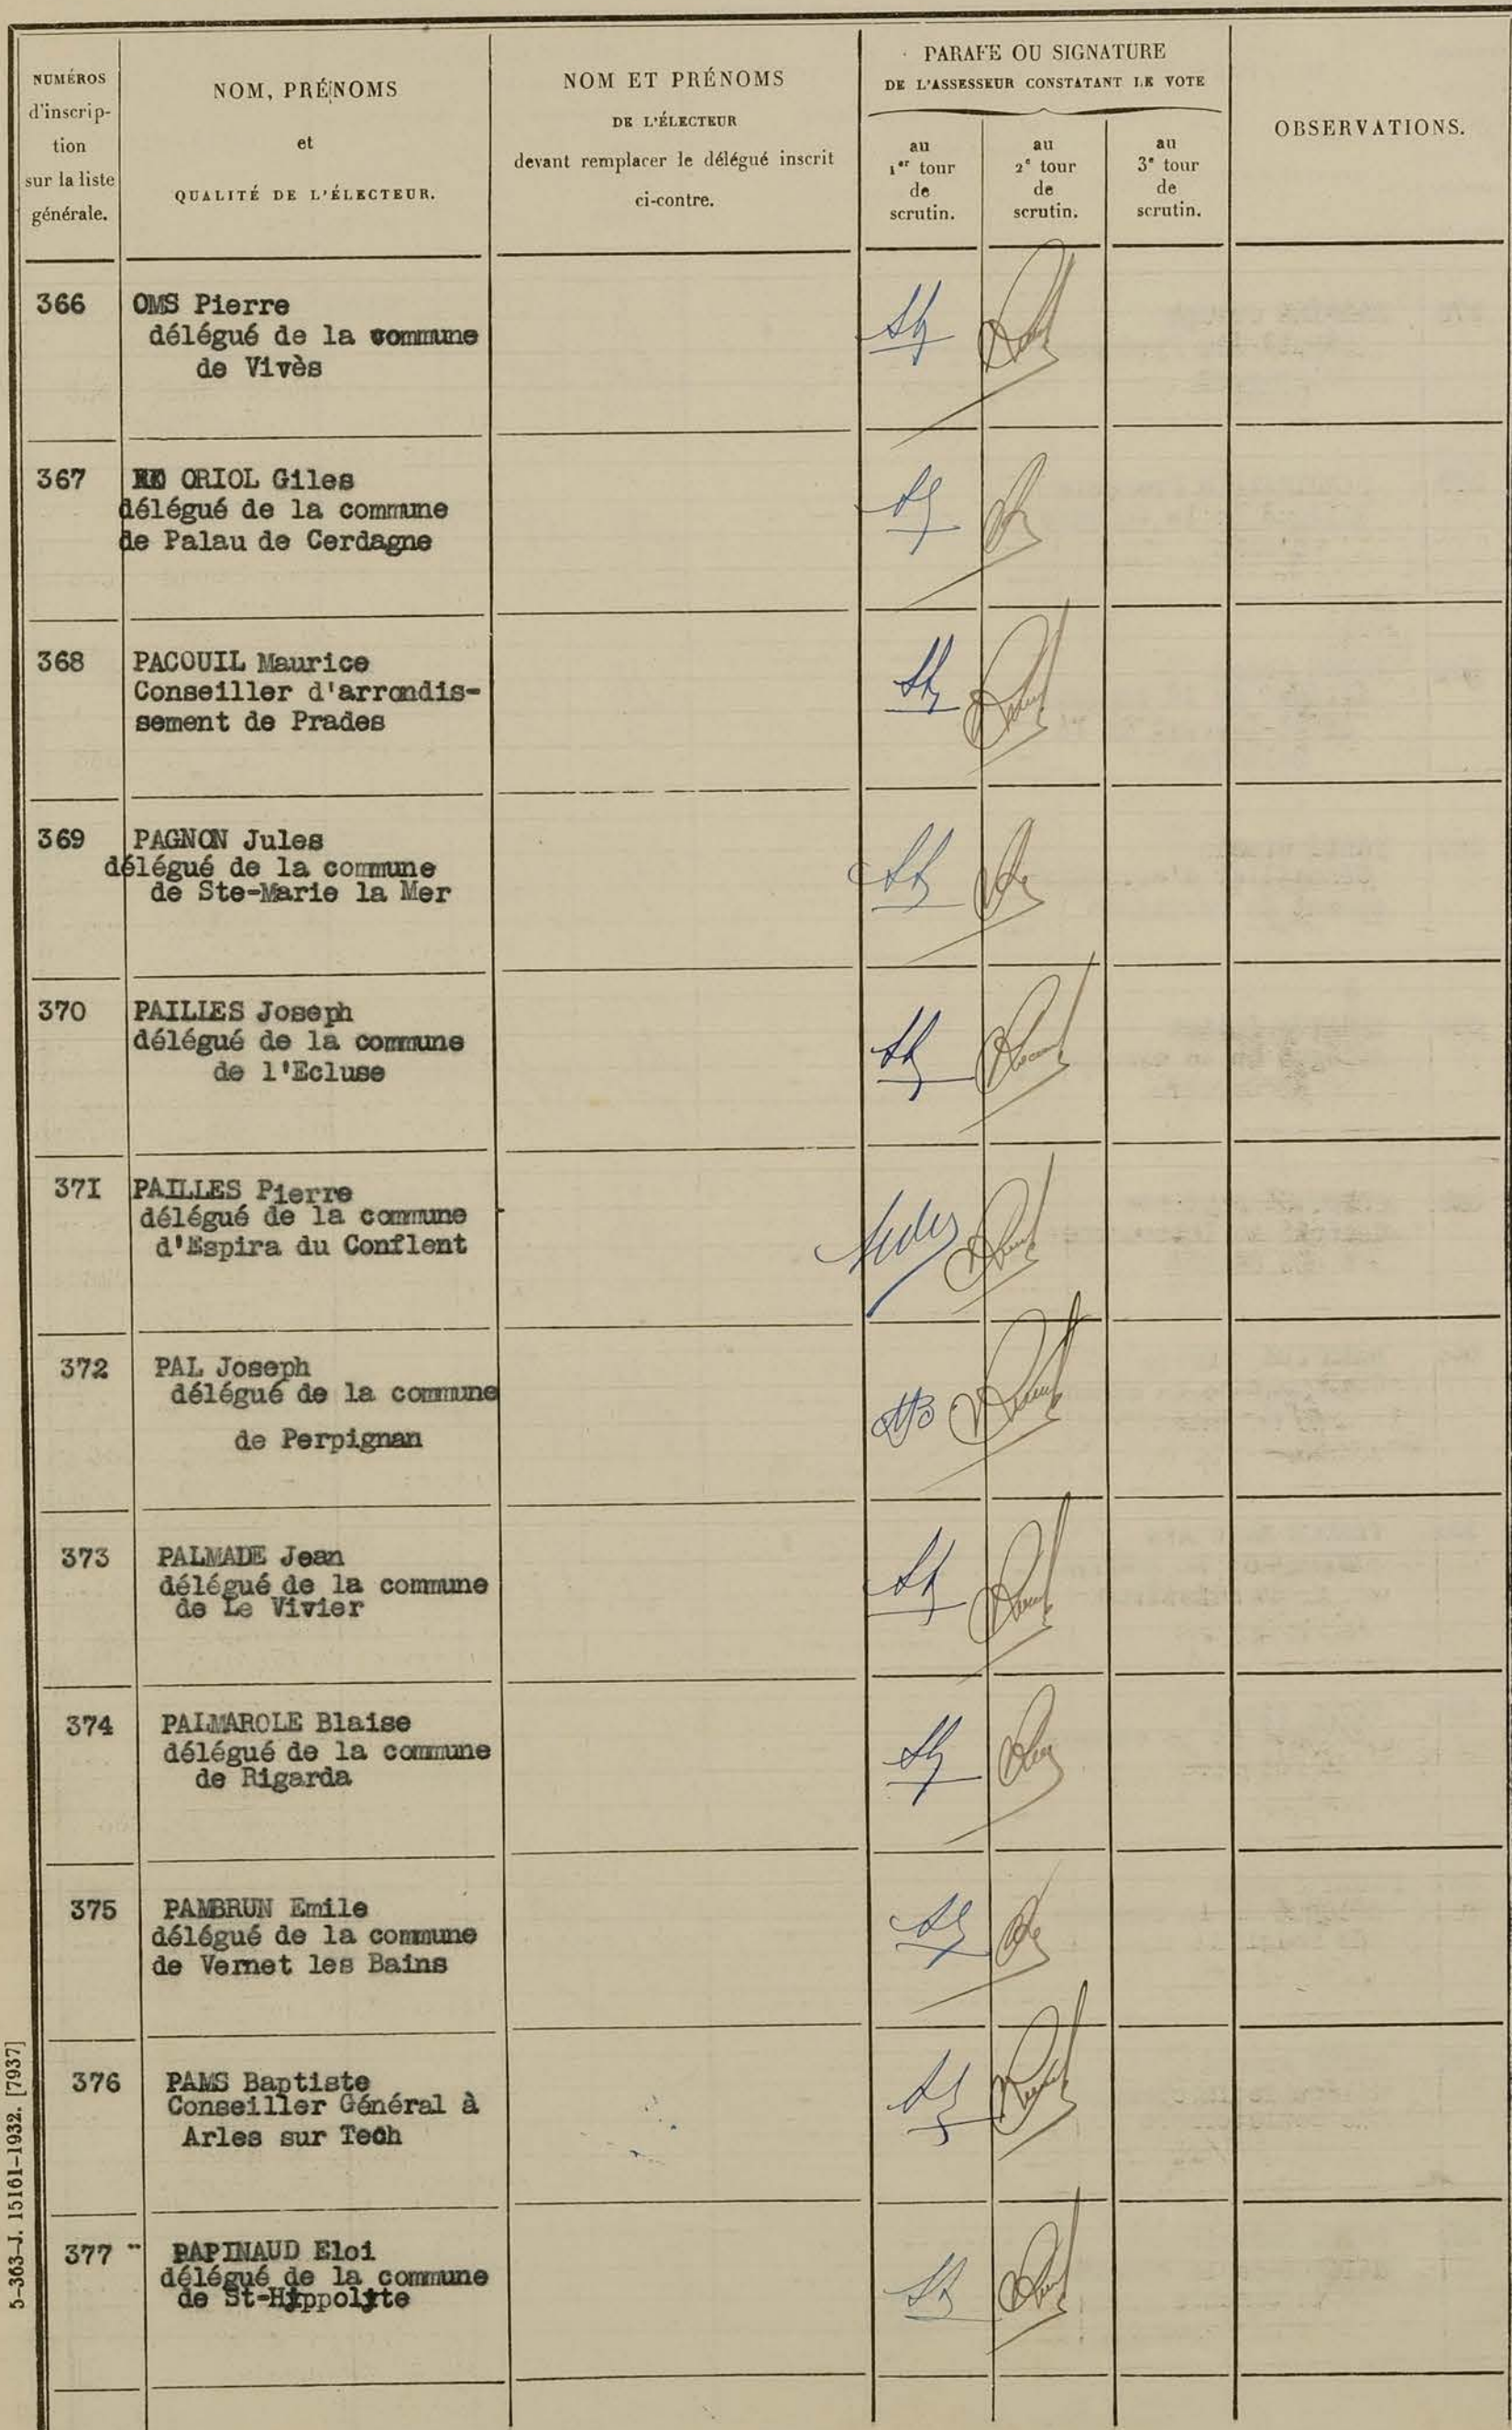 NUMÉROS
d'inscrip-
tion
sur la liste
générale.
NOM, PRÉNOMS
et
QUALITÉ DE L'ÉLECTEUR.
NOM ET PRÉNOMS
DE L'ÉLECTEUR
devant remplacer le délégué inscrit
ci-contre.
PARAFE OU SIGNATURE
DE L'ASSESSEUR CONSTATANT LE VOTE
au
1er tour
de
scrutin.
au
2e tour
de
scrutin.
au
3e tour
de
scrutin.
OBSERVATIONS.
366 OMS Pierre
délégué de la commune
de Vivès
367 ORIOL Giles
délégué de la commune
de Palau de Cerdagne
368 PACOUIL Maurice
Conseiller d'arrondis-
sement de Prades
369 PAGNON Jules
délégué de la commune
de Ste-Marie la Mer
370 PAILLES Joseph
délégué de la commune
de l'Ecluse
37I PAILLES Pierre
délégué de la commune
d'Espira du Conflent
372 PAL Joseph
délégué de la commune
de Perpignan
373 PALMADE Jean
délégué de la commune
de Le Vivier
374 PALMAROLE Blaise
délégué de la commune
de Rigarda
375 PAMBRUN Emile
délégué de la commune
de Vernet les Bains
376 PAMS Baptiste
Conseiller Général à
Arles sur Tech
377 PAPINAUD Eloi
délégué de la commune
de St-Hippolyte
5-363-J. 15161-1932. [7937]